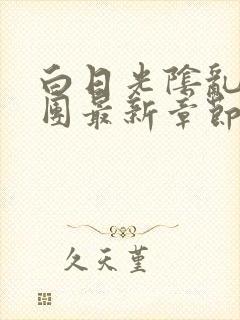 白日光陰亂
團最新章節
久天堇